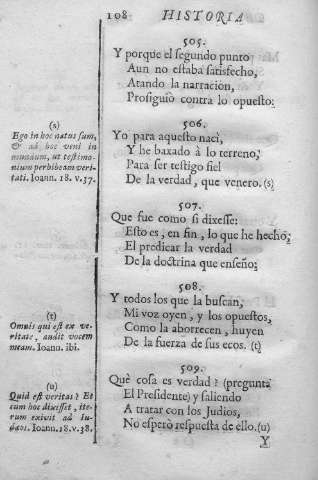 108 HISTORIA
505.
Y porque el segundo punto
Aun no estaba satisfecho,
Atando la narracion,
Prosiguiò contra lo opuesto:
506.
Yo para aquesto naci,
Y he baxado à lo terreno,
Para ser testigo fiel
De la verdad, que venero. (s)
(s)
Ego in hoc natus sum,
& ad hoc veni in
mundum, ut testimo-
nium perhibeam veri-
tati. Ioann. 18. v.37.
507.
Que fue como si dixesse:
Esto es, en fin, lo que he hecho;
El predicar la verdad
De la doctrina que enseño;
508.
Y todos los que la buscan,
Mi voz oyen, y los opuestos,
Como la aborrecen, huyen
De la fuerza de sus ecos. (t)
(t)
Omnis qui est ex ve-
ritate, audit vocem
meam. Ioann. ibi.
509.
Què cosa es verdad? (pregunta
El Presidente) y saliendo
A tratar con los Judios,
No esperò respuesta de ello. (u)
(u)
Quid est veritas? Et
cum hoc dixisset, ite-
rum exivit ad Iu-
dæos. Ioann. 18. v.38.
Y